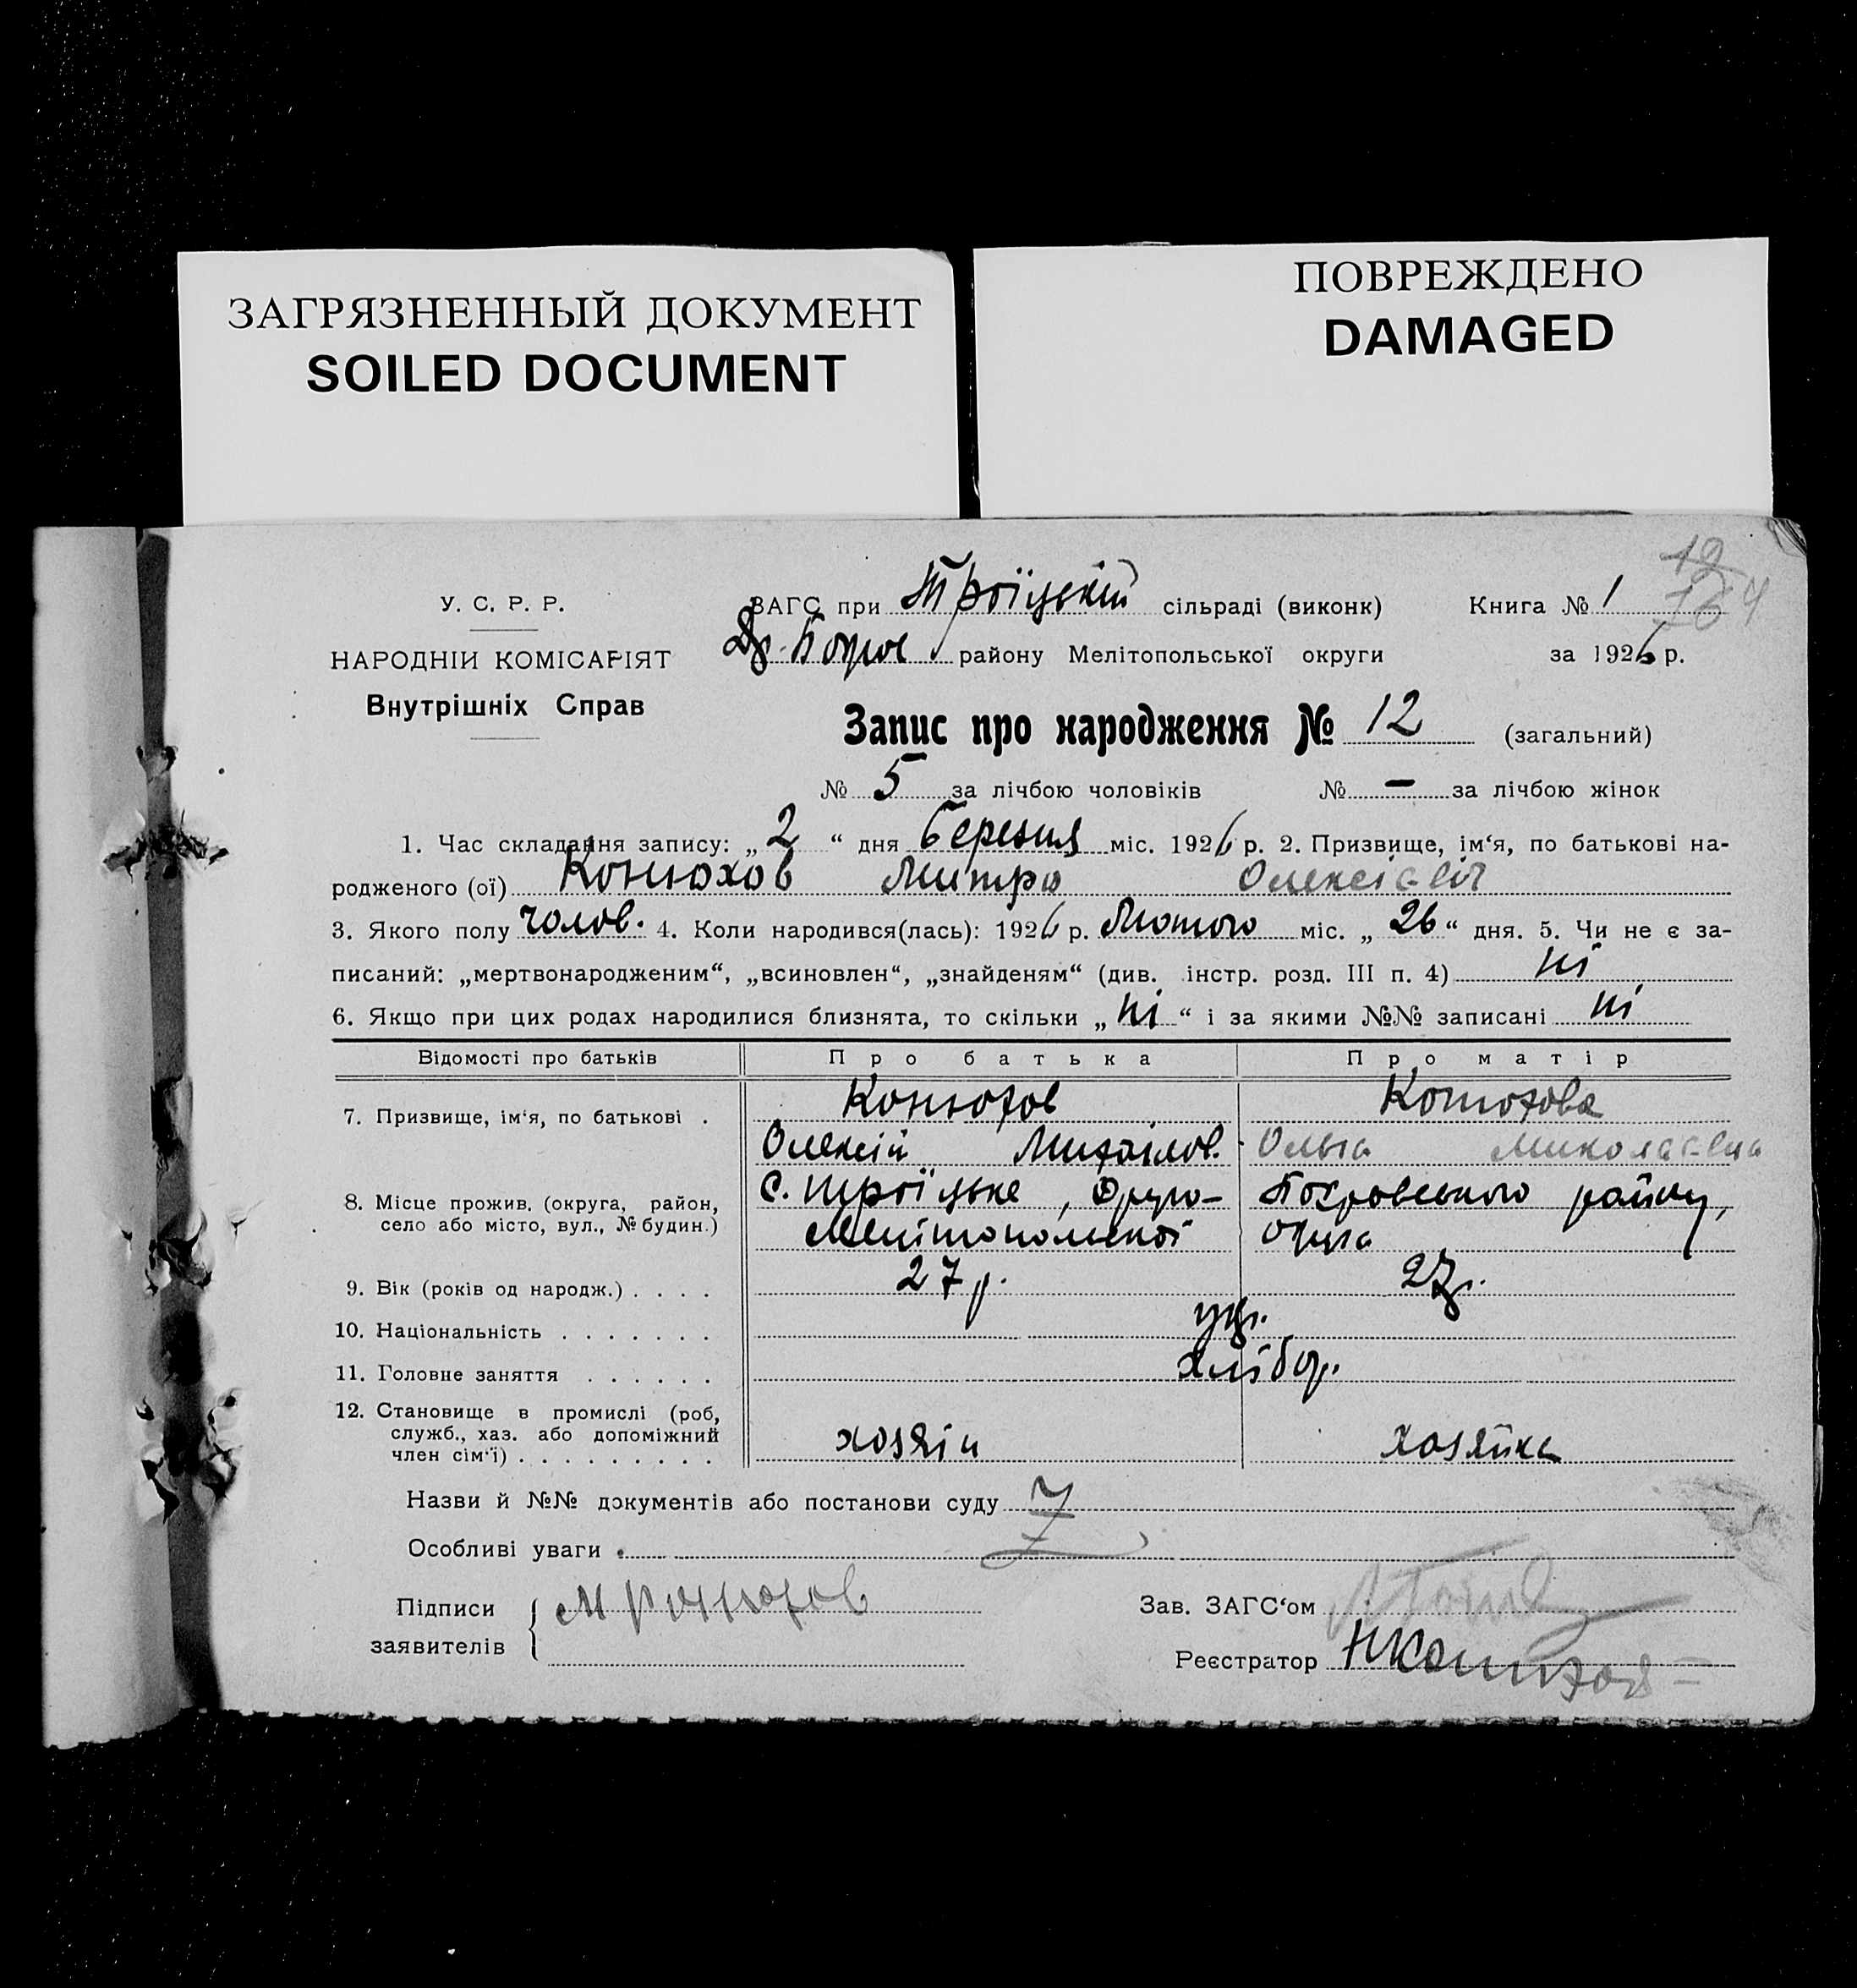 ЗАГРЯЗНЕННЫЙ ДОКУМЕНТ
SOILED DOCUMENT
ПОВРЕЖДЕНО
DAMAGED
У. С. Р. Р.
НАРОДНІЙ КОМІСАРІЯТ
Внутрішніх Справ
ЗАГС при Троїцькій сільраді (виконк) Книга № 1
району Мелітопольської округи за 1926 р.
Запис про народження № 12 (загальний)
№ 5 за лічбою чоловіків № — за лічбою жінок
1. Час складання запису: „ 2 “ дня березня міс. 1926 р. 2. Призвище, ім‘я, по батькові на-
родженого (ої) Конюхов Митро Олексієвіч
3. Якого полу чолов. 4. Коли народився(лась): 1926 р. Лютого міс. „ 26 “ дня. 5. Чи не є за-
писаний: „мертвонародженим“, „всиновлен“, „знайденям“ (див. інстр. розд. III п. 4) ні
6. Якщо при цих родах народилися близнята, то скільки „ ні “ і за якими №№ записані ні
Відомості про батьків Про батька Про матір
7. Призвище, ім‘я, по батькові . Конюхов Конюхова
Олексій Михайлов. Ольга Миколаєвна
8. Місце прожив. (округа, район, с. Троїцьке, Друго- Покровського району,
село або місто, вул., № будин.) Мелітопольської округа
9. Вік (років од народж.) . . . . 27 р. 27 р.
10. Національність . . . . . . . укр.
11. Головне заняття . . . . . . хлібор.
12. Становище в промислі (роб,
служб., хаз. або допоміжний хозяін хозяйка
член сім‘ї) . . . . . . . . .
Назви й №№ документів або постанови суду
Особливі уваги
Підписи
заявителів
Зав. ЗАГС‘ом
Реєстратор НКонюхов